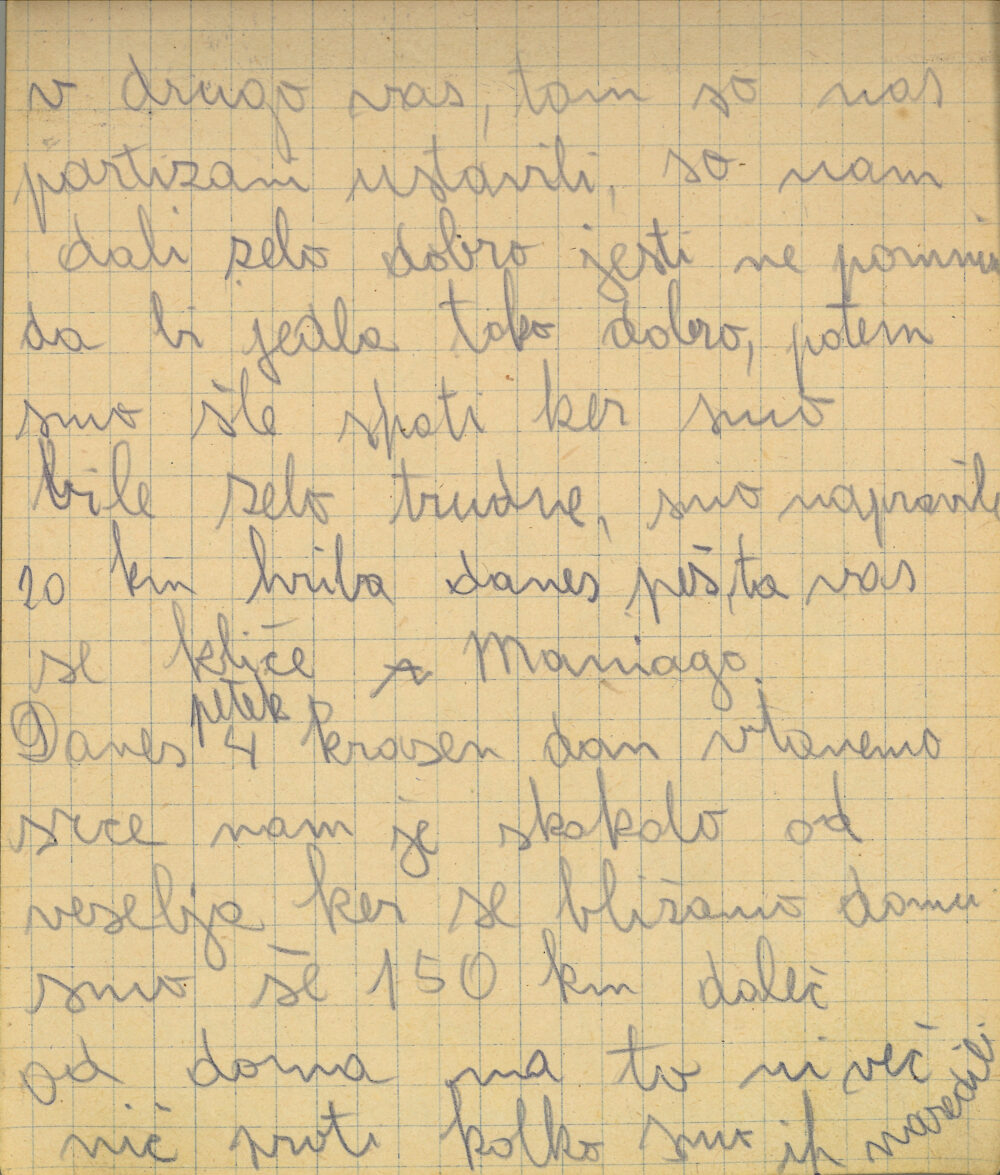 v drugo vas, tam so nas
partizani ustavili, so nam
dali zelo dobro jesti ne pomnim
da bi jedla tako dobro, potem
smo šle spati ker smo
bile zelo trudne, smo napravile
20 km hriba danes peš, ta vas
se kliče Maniago.
Danes petek 4 krasen dan vstanemo
srce nam je skakalo od
veselja ker se bližamo domu
smo še 150 km daleč
od doma ma to ni več
nič proti kolko smo ih naredili